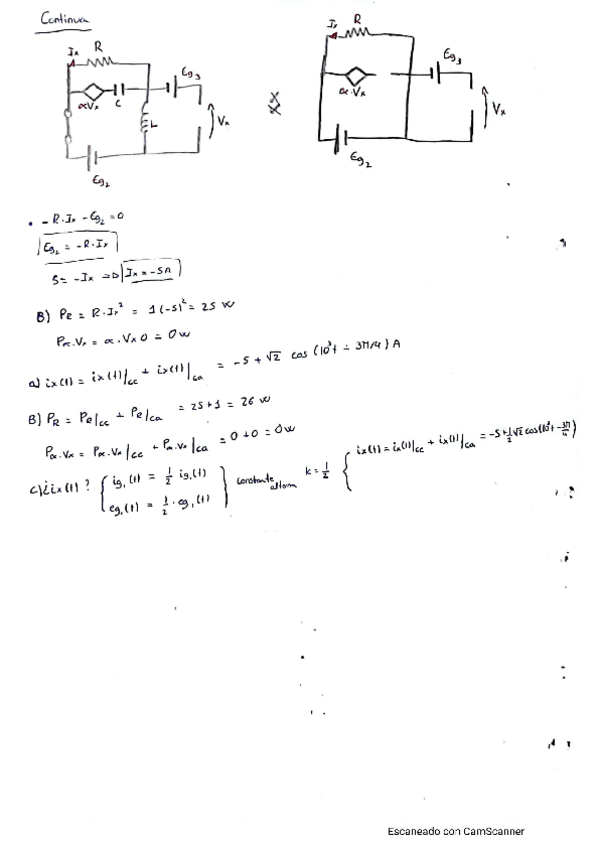 Continua
Ix R
αVx C
Eg3
L
Vx
Eg2
Ix R
α·Vx
Eg3
Vx
Eg2
• -R·Ix - Eg2 = 0
Eg2 = -R·Ix
5 = -Ix => Ix = -5A
B) Pe = R·Ix² = 1(-5)² = 25 W
Pα.Vx = α·Vx 0 = 0w
a) ix(t) = ix(t)|cc + ix(t)|ca = -5 + √2 cos (10³t - 3π/4) A
B) PR = Pe|cc + Pe|ca = 25 + 1 = 26 W
Pα.Vx = Pα.Vx|cc + Pα.Vx|ca = 0 + 0 = 0w
c) ¿ix(t)? { ig1(t) = 1/2 ig1(t) eg1(t) = 1/2 · eg1(t) } constante alterna k = 1/2 { ix(t) = ix(t)|cc + ix(t)|ca = -5 + 1/2 √2 cos(10³t - 3π/4)
Escaneado con CamScanner